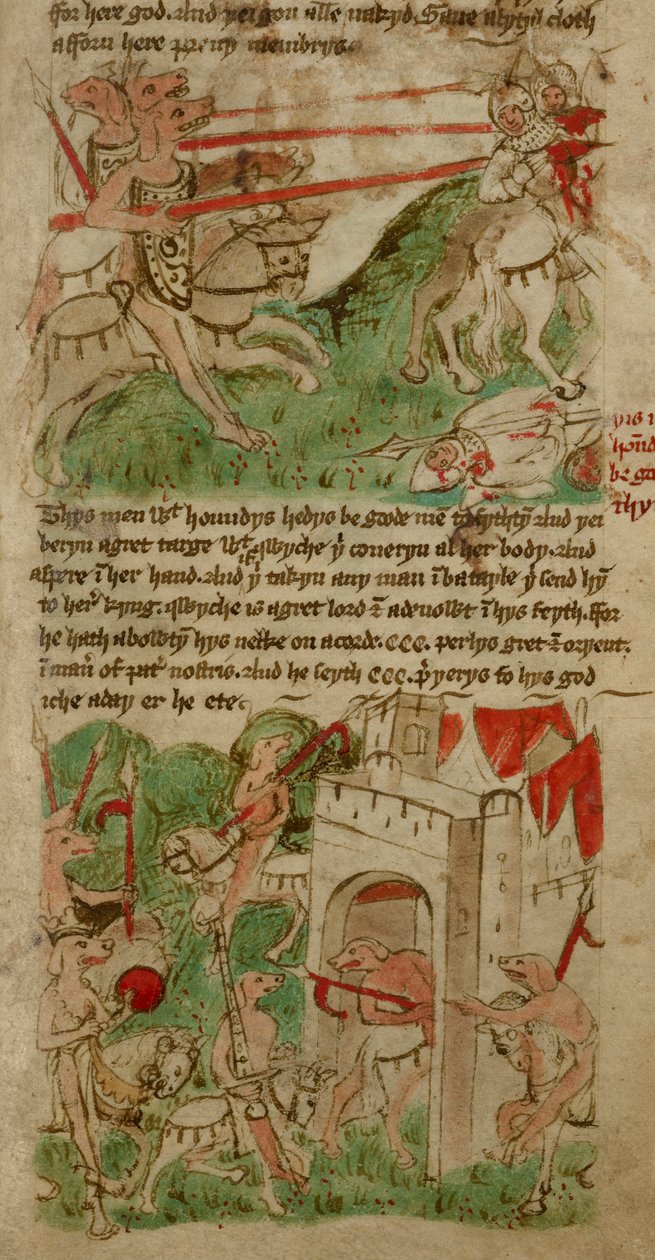 ffor here god. And yei gon alle nakyd. Saue a lytyl cloth
afforn here preuy membrys.
Thys men wt houndys hedys be goode mē to fythtyn And yei
beryn a gret targe wt qwyche yͥ coueryn al her body. And
a spere ī her hand. And if yͥ takyn any man ī batayle yͥ send hȳ
to herʼ kyng. qwyche is a gret lord ⁊ a deuowt ī hys feyth. ffor
he hath abowtyn hys nekke on a corde. CCC. perlys gret ⁊ oryent.
ī manʼ of patʼ nostris. And he seyth CCC. pʼyerys to hys god
iche a day er he ete
yis
be